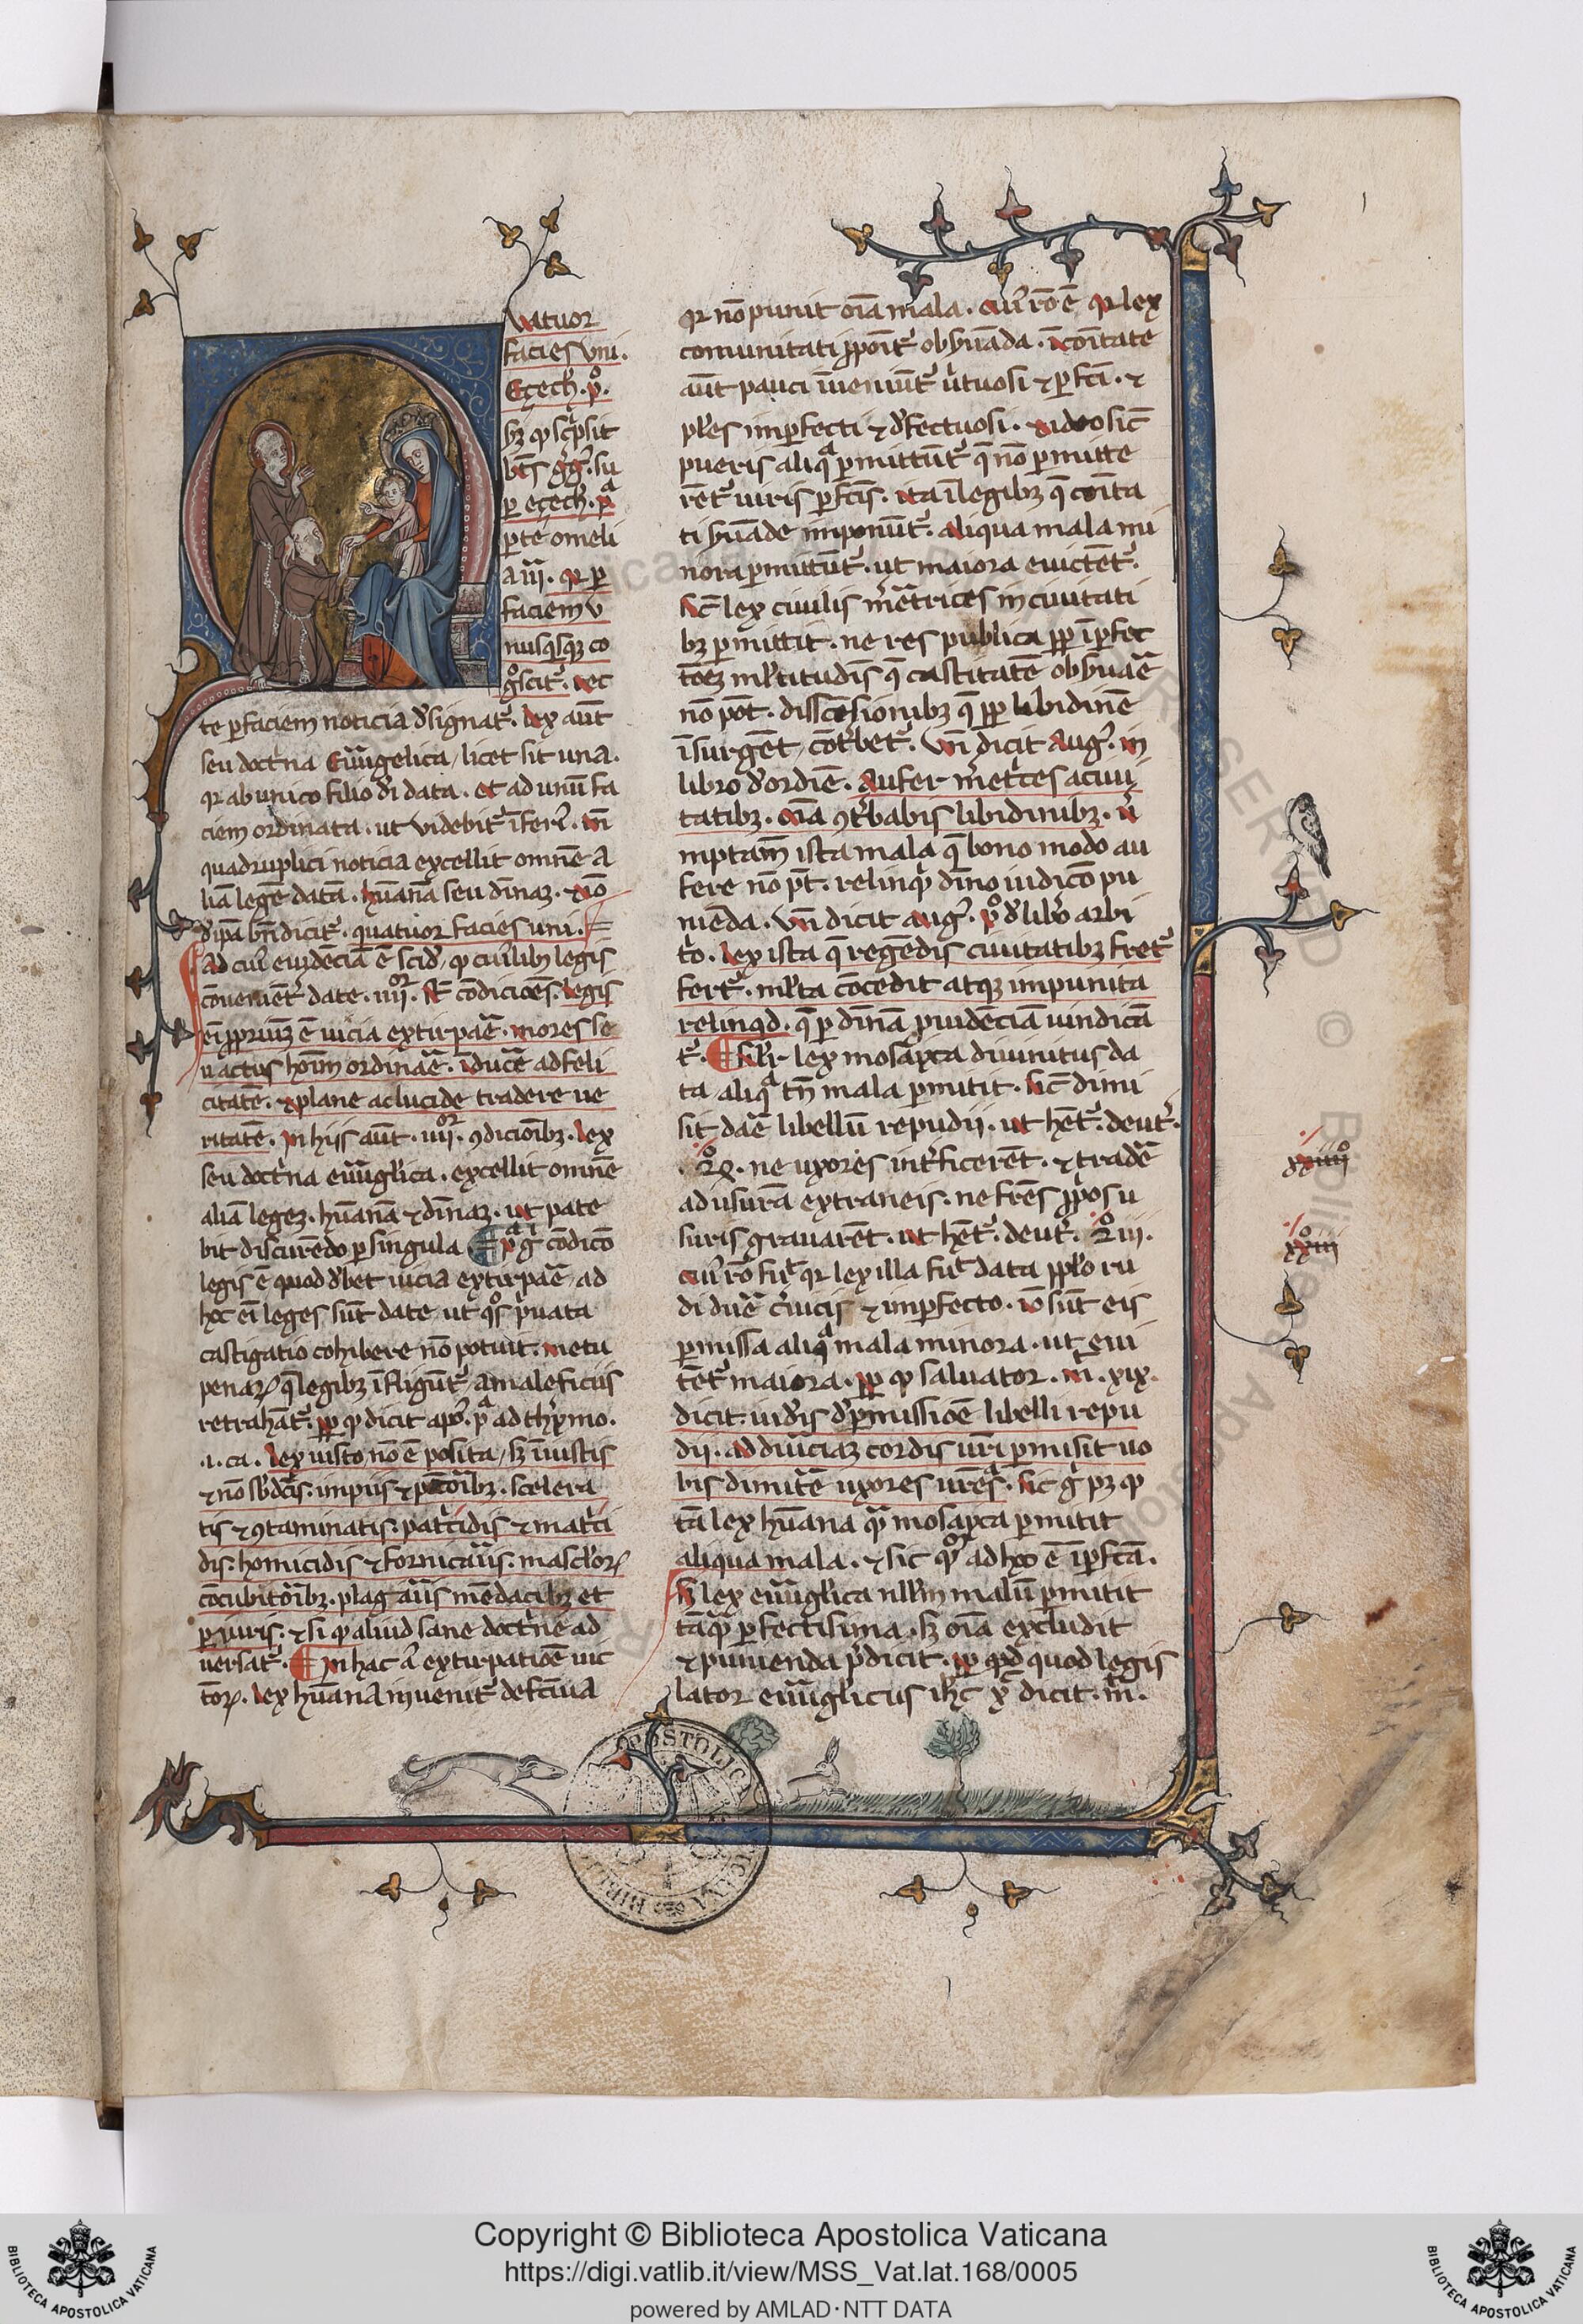 uatuor
facies vni.
Eçech̅. pº.
bʒ ꝙ scͥpsit
bt̅s gͥgͦ. su
ꝑ eçech̅. pᵃ
ꝑte omeli
a .iii. qr ꝑ
faciem v
nusqͥsqʒ co
gºscit᷑. Rec
te ꝑ faciem noticia d̾signat᷑. Lex au̅t
seu doctͥna Euua̅gelica / licet sit una.
qr ab unico filio di̅ data. et ad unu̅ fa
ciem ordinata. ut videbit᷑ i̅feri᷑. tn̅
quadruplici noticia excellit omne̅ a
lia̅ lege̅ data̅. huana̅ seu diu̅inaʒ.
facies uni.
ad cui᷑ euide̅cia̅ e̅ scie̅d᷑, ꝙ cui᷑libʒ legis
co̅uenie̅t᷑ date. iiiiᵒʳ. st̅ co̅dicioe̅s. legis
ei̅ ꝓpriuʒ e̅ uicia extirpar̅e. mores se
u actus hoi̅m ordinar̅e. i̅duce̅ ad feli
citate̅. ⁊ plane ac lucide tradere ue
ritate̅. In hiis au̅t. iiiiᵒʳ. ꝯdicioi̅bʒ. lex
seu doctͥna euua̅gl̅ica. excellit omne̅
alia̅ legeʒ. hu̅ana̅ ⁊ diu̅inaʒ. ut pate
bit discure̅do ꝑ singula ¶ pᵃ gͥ co̅dico̅
legis e̅ quod d̾bet uicia extirpar̅e / ad
hoc ei̅ leges su̅t date. ut qºs pͥuata
castigatio cohibere no̅ potuit. metu
penaꝝ q̅ legibʒ i̅fligu̅t᷑ / a maleficiis
retraha̅t᷑. ꝓpt̅ ꝙ dicit apº. pᵃ ad thymo.
.i. ca. lex iusto no̅ e̅ posita / sʒ i̅iustis
⁊ no̅ sb̅dit̅is. impiis ⁊ pcc̅atoribʒ. scelera
tis ⁊ ꝯtaminatis. patͥcidis ⁊ matͥci
dis. homicidis ⁊ fornicar̅iis. mascl̅oꝝ
co̅cubitoͥibʒ. plagiar̅iis me̅dacibʒ et
ꝑiuris. ⁊ si qͥ aliud sane doctͥne ad
uersat᷑. ¶ In hac a̅ extirpatioe̅ uic
ioꝝ. lex hu̅ana inuenit᷑ defctiua
qr no̅ punit oi̅a mala. cui᷑ ro̅ e̅ qr lex
comunitati ꝓponit᷑ obs̾uan̅da. i̅ coi̅tate
au̅t pauci i̅ueniu̅t᷑ uͥtuosi ⁊ ꝑfcͥi. ⁊
pl̅es imꝑfecti ⁊ d̾fectuosi. ⁊ ideo sic̅
pueris aliqᵃ ꝑmittu̅t᷑ q̅ no̅ ꝑmitte
re̅t᷑ uiris ꝑfcͥis. ita i̅ legibʒ q̅ coi̅ta
ti s̾uan̅de imponu̅t᷑. aliqua mala mi
nora ꝑmittu̅t᷑. ut maiora euicte̅t᷑.
sic̅ lex ciuilis m̾etrices in ciuitati
bʒ ꝑmittit. ne res publica ꝓpt̅ i̅ꝑfec
to̅eʒ ml̅titudi̅s q̅ castitate̅ obs̾uar̅e
no̅ pot̅. disse̅sionibʒ q̅ ꝓpt̅ libidine̅
i̅surge̅t / co̅turbet᷑. Vn̅ dicit Augº. in
libro d̾ ordi̅e. Aufer m̾et̾ces a ciui
tatibʒ. oi̅a ꝯt̾babis libidinibʒ. v̾
mptam̅ ista mala q̅ bono modo au
fere no̅ pt̅. relinqͥt di̅no iudico̅ pu
nie̅da. Vn̅ dicit augº. pº d̾ libº arbi
tͥo. lex ista q̅ rege̅dis ciuitatibʒ fret᷑
fert᷑. ml̅ta co̅cedit atqʒ impunita
relinqͥd. q̅ ꝑ di̅na̅ ꝓuide̅cia̅ uindica̅
t᷑. ¶ Sil̅r lex mosayca diuinitus da
ta aliqᵃ tn̅ mala ꝑmitit. sic̅ dimi
sit dar̅e libellu̅ repudii. ut he̅t᷑. deut͛.
ne uxores int̾ficere̅t. ⁊ trade̅
ad usura̅ extraneis. ne fr̅es ꝓprios u
suris grauare̅t. ut he̅t᷑. deut͛. 23.
cui᷑ ro̅ fu̅t qr lex illa fu̅t data ppl̅o ru
di dur̅e c̾uicis ⁊ imꝑfecto. iº su̅t eis
ꝑmissa aliqᵃ mala minora. ut eui
te̅t᷑ maiora. ꝓpt̅ ꝙ saluator. m̅. xix.
dicit. iud̾is d̾ ꝑmissioe̅ libelli repu
dii. ad duriciaʒ cordis ur̅i ꝑmisit uo
bis dimit̾e̅ uxores ur̅es. sic gͥ pʒ ꝙ
ta̅ lex hu̅ana qᵃ̅ mosayca ꝑmitit
aliqua mala. ⁊ sic qº ad hoc e̅ i̅ꝑfcta̅.
sʒ lex euua̅gl̅ica nll̅m malu̅ ꝑmitit
ta̅qᵃ̅ ꝑfectisima. sʒ oi̅a excludit
⁊ punienda p̾dicit. ꝓpt̅ qd̅ quod legis
lator euua̅gl̅icus ih̅c x̅ dicit. m̅.
xxiiiiº
xxiii
Copyright © Biblioteca Apostolica Vaticana
https://digi.vatlib.it/view/MSS_Vat.lat.168/0005
powered by AMLAD·NTT DATA
BIBLIOTECA APOSTOLICA VATICANA
BIBLIOTECA APOSTOLICA VATICANA